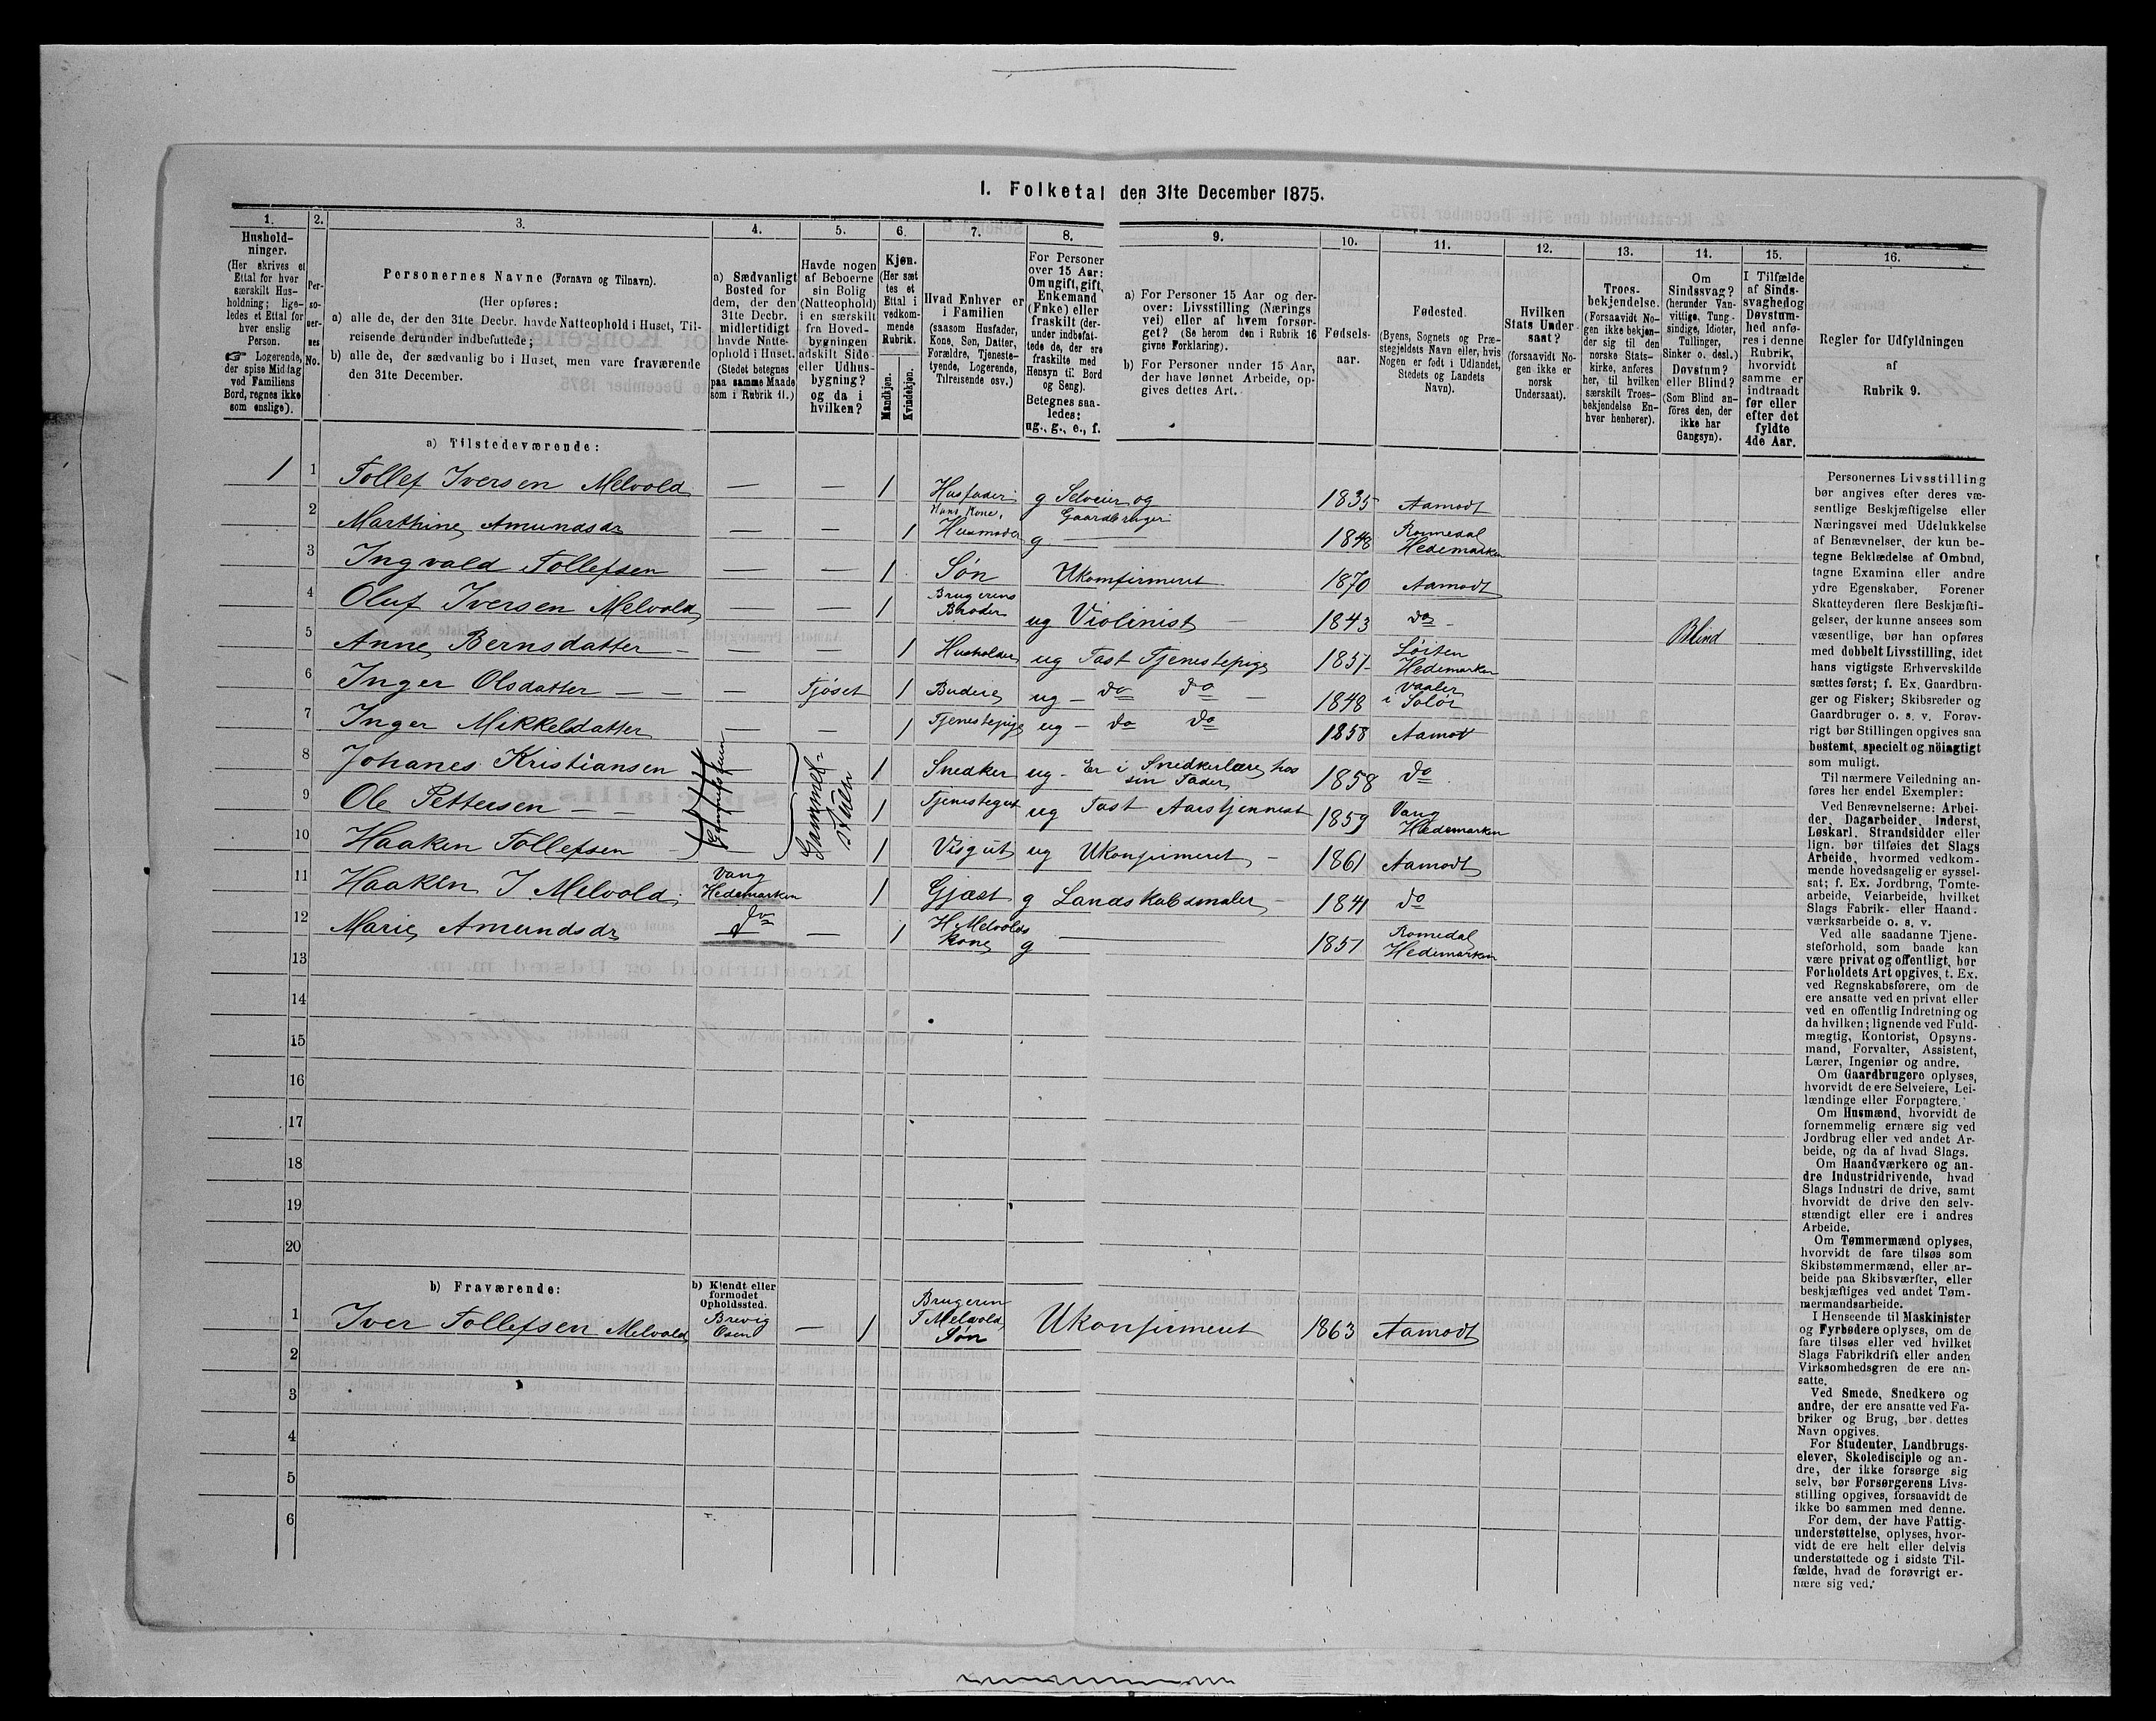 I. Folketal den 31te December 1875.
1. 2. 3. 4. 5. 6. 7. 8. 9. 10. 11. 12. 13. 14. 15. 16.
Hushold-
ninger.
(Her skrives et
Ettal for hver
særskilt Hus-
holdning; lige-
ledes et Ettal for
hver enslig
Person.
☞ Logerende,
der spise Middag
ved Familiens
Bord, regnes ikke
som enslige).
Per-
so-
ner-
nes
No.
Personernes Navne (Fornavn og Tilnavn).
(Her opføres:
a) alle de, der den 31te Decbr. havde Natteophold i Huset, Til-
reisende derunder indbefattede;
b) alle de, der sædvanlig bo i Huset, men vare fraværende
den 31te December.
a) Sædvanligt
Bosted for
dem, der den
31te Decbr.
midlertidigt
havde Natte-
ophold i Huset.
(Stedet betegnes
paa samme Maade
som i Rubrik 11.)
Havde nogen
af Beboerne
sin Bolig
(Natteophold)
i en særskilt
fra Hoved-
bygningen
adskilt Side-
eller Udhus-
bygning?
og da i
hvilken?
Kjøn.
(Her sæt-
tes et
Ettal i
vedkom-
mende
Rubrik.
Mandkjøn.
Kvindekjøn.
Hvad Enhver er
i Familien
(saasom Husfader,
Kone, Søn, Datter,
Forældre, Tjeneste-
tyende, Logerende,
Tilreisende osv.)
For Personer
over 15 Aar:
Om ugift, gift,
Enkemand
(Enke) eller
fraskilt (der-
under indbefat-
tede de, der ere
fraskilte med
Hensyn til Bord
og Seng).
Betegnes saa-
ledes:
ug., g., e., f.
a) For Personer 15 Aar og der-
over: Livsstilling (Nærings
vei) eller af hvem forsør-
get? (Se herom den i Rubrik 16
givne Forklaring).
b) For Personer under 15 Aar,
der have lønnet Arbeide, op-
gives dettes Art.
Fødsels-
aar.
Fødested.
(Byens, Sognets og Præ-
stegjeldets Navn eller, hvis
Nogen er født i Udlandet,
Stedets og Landets
Navn).
Hvilken
Stats Under-
saat?
(forsaavidt No-
gen ikke er
norsk
Undersaat).
Troes-
bekjendelse.
(Forsaavidt No-
gen ikke bekjen-
der sig til den
norske Stats-
kirke, anføres
her, til hvilken
særskilt Troes-
bekjendelse En-
hver henhører).
Om
Sindssvag?
(herunder Van-
vittige, Tung-
sindige, Idioter,
Tullinger,
Sinker o. desl.)
Døvstum?
eller Blind?
(Som Blind an-
føres den, der
ikke har
Gangsyn).
I Tilfælde
af Sinds-
svaghed og
Døvstum-
hed anfø-
res i denne
Rubrik,
hvorvidt
samme er
indtraadt
før eller
efter det
fyldte
4de Aar.
Regler for Udfyldningen
af
Rubrik 9.
a) Tilstedeværende:
1 1 Tollef Iversen Melvold — — 1 Husfader g Selveier og Gaardbruger 1835 Aamodt
2 Marthine Amundsdr — — 1 Hans Kone, Husmoder g — 1848 Romedal Hedemarken
3 Ingvald Tollefsen — — 1 Søn Ukonfirmeret 1870 Aamodt
4 Oluf Iversen Melvold — — 1 Brugerens Broder ug Violinist — 1843 do - Blind
5 Anne Bernsdatter - — — 1 Husholder ug Fast Tjenestepige 1851 Løiten Hedemarken
6 Inger Olsdatter — — — Fjøset 1 Budeie ug - do do — 1848 Vaaler i Solør
7 Inger Mikkelsdatter — — 1 Tjenestepige ug - do do 1858 Aamot
8 Johanes Kristiansen 1 Snedker ug - Er i Snedkerlære hos sin Fader 1858 do
9 Ole Pettersen — — Gammel-stuen 1 Tjenestegut ug Fast Aarstjennest 1859 Vang Hedemarken
10 Haaken Tollefsen — 1 Visgut ug Ukonfirmeret - 1861 Aamodt
11 Haaken I Melvold Vang Hedemarken 1 Gjæst g Landskabsmaler - 1841 do
12 Marie Amundsdr do — 1 H Melvolds Kone g — 1851 Romedal Hedemarken
13
14
15
16
17
18
19
20
b) Fraværende:
b) Kjendt eller
formodet
Opholdssted.
1 Iver Tollefsen Melvold Brevig Osen — 1 Brugeren T Melvold Søn Ukonfirmeret 1863 Aamodt
2
3
4
5
6
Personernes Livsstilling
bør angives efter deres væ-
sentlige Beskjæftigelse eller
Næringsvei med Udelukkelse
af Benævnelser, der kun be-
tegne Beklædelse af Ombud,
tagne Examina eller andre
ydre Egenskaber. Forener
Skatteyderen flere Beskjæfti-
gelser, der kunne ansees som
væsentlige, bør han opføres
med dobbelt Livsstilling, idet
hans vigtigste Erhvervskilde
sættes først; f. Ex. Gaardbru-
ger og Fisker; Skibsreder og
Gaardbruger o. s. v. Forøv-
rigt bør Stillingen opgives saa
bestemt, specielt og nöiagtigt
som muligt.
Til nærmere Veiledning an-
føres her endel Exempler:
Ved Benævnelserne: Arbei-
der, Dagarbeider, Inderst,
Løskarl, Strandsidder eller
lign. bør tilføies det Slags
Arbeide, hvormed vedkom-
mende hovedsagelig er syssel-
sat; f. Ex. Jordbrug, Tomte-
arbeide, Veiarbeide, hvilket
Slags Fabrik- eller Haand-
værksarbeide o. s. v.
Ved alle saadanne Tjene-
steforhold, som baade kan
være privat og offentligt, bør
Forholdets Art opgives, t. Ex.
ved Regnskabsførere, om de
ere ansatte ved en privat eller
ved en offentlig Indretning og
da hvilken; lignende ved Fuld-
mægtig, Kontorist, Opsyns-
mand, Forvalter, Assistent,
Lærer, Ingeniør og andre.
Om Gaardbrugere oplyses,
hvorvidt de ere Selveiere, Lei-
lændinge eller Forpagtere.
Om Husmænd, hvorvidt de
fornemmelig ernære sig ved
Jordbrug eller ved andet Ar-
beide, og da af hvad Slags.
Om Haandværkere og an-
dre Industridrivende, hvad
Slags Industri de drive, samt
hvorvidt de drive den selv-
stændigt eller ere i andres
Arbeide.
Om Tømmermænd oplyses,
hvorvidt de fare tilsøs som
Skibstømmermænd, eller ar-
beide paa Skibsværfter, eller
beskjæftiges ved andet Tøm-
mermandsarbeide.
I Henseende til Maskinister
og Fyrbødere oplyses, om de
fare tilsøs eller ved hvilket
Slags Fabrikdrift eller anden
Virksomhedsgren de ere an-
satte.
Ved Smede, Snedkere og
andre, der ere ansatte ved Fa-
briker og Brug, bør dettes
Navn opgives.
For Studenter, Landbrugs-
elever, Skoledisciple og an-
dre, der ikke forsørge sig
selv, bør Forsørgerens Livs-
stilling opgives, forsaavidt de
ikke bo sammen med denne.
For dem, der have Fattig-
understøttelse, oplyses, hvor-
vidt de ere helt eller delvis
understøttede og i sidste Til-
fælde, hvad de forøvrigt er-
nære sig ved.